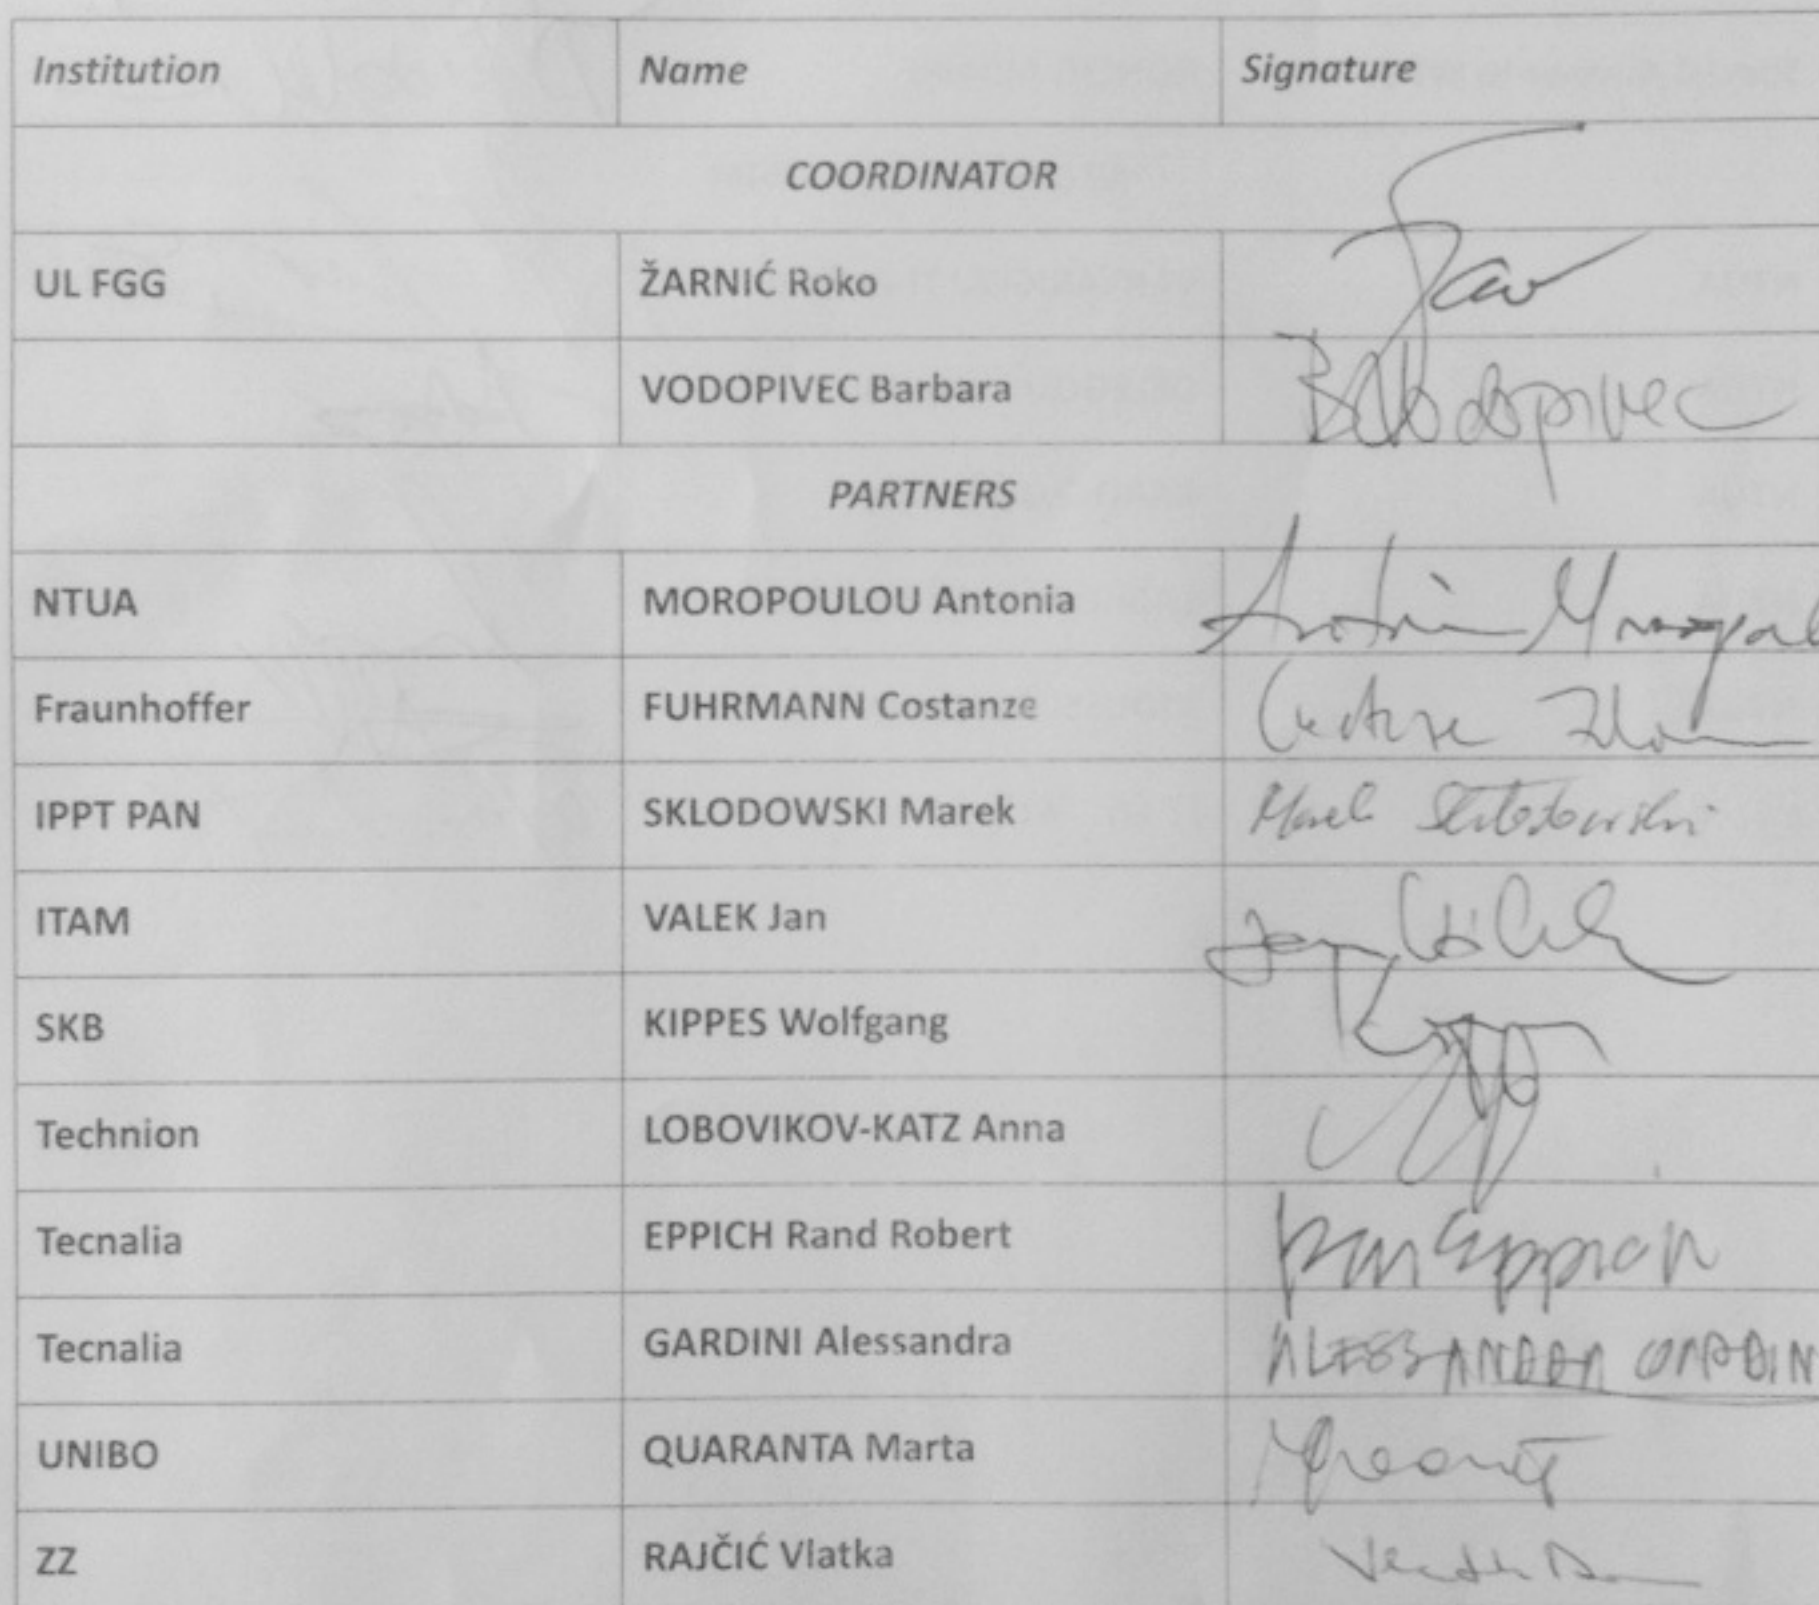 Institution Name Signature
COORDINATOR
UL FGG ŽARNIĆ Roko
VODOPIVEC Barbara BVodopivec
PARTNERS
NTUA MOROPOULOU Antonia Antonia
Fraunhoffer FUHRMANN Costanze
IPPT PAN SKLODOWSKI Marek Marek Skłodowski
ITAM VALEK Jan Jan Válek
SKB KIPPES Wolfgang
Technion LOBOVIKOV-KATZ Anna
Tecnalia EPPICH Rand Robert Rand Eppich
Tecnalia GARDINI Alessandra ALESSANDRA GARDIN
UNIBO QUARANTA Marta
ZZ RAJČIĆ Vlatka